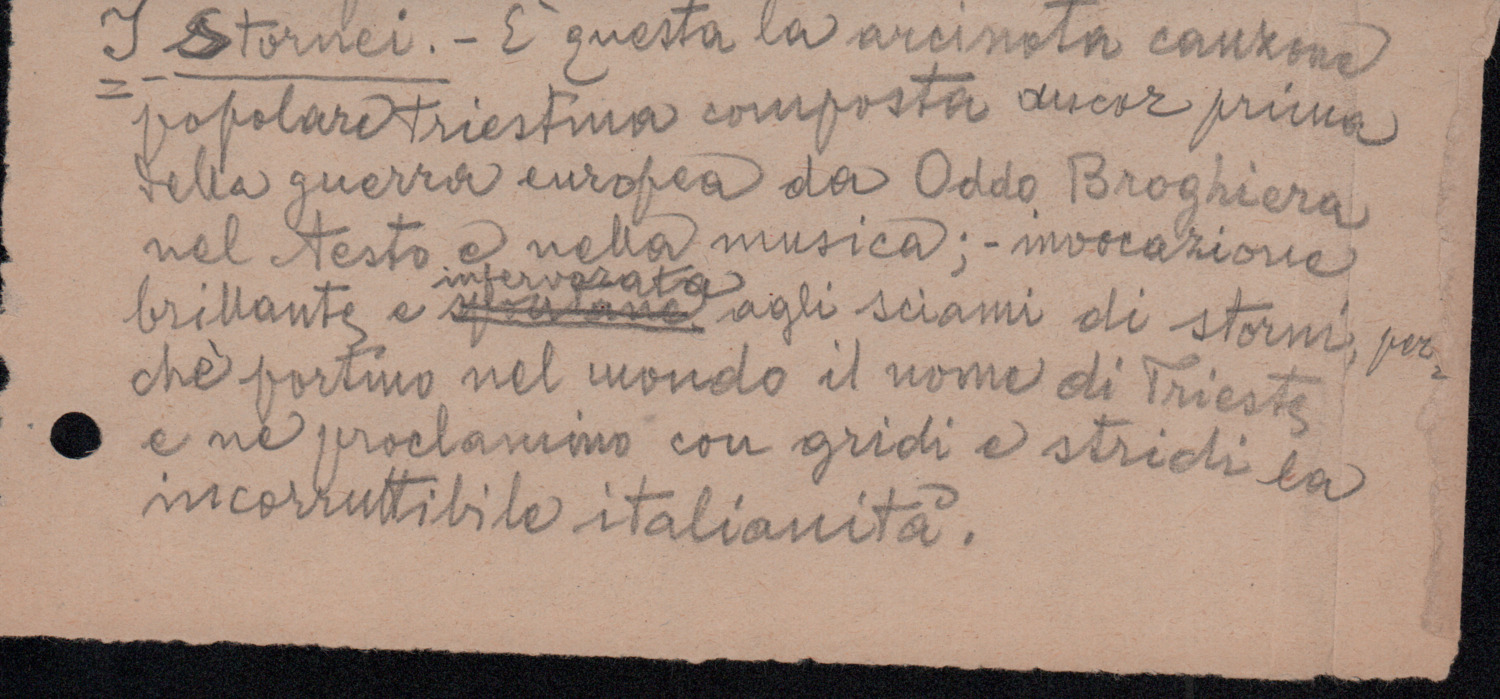 I Stornei. – È questa la arcinota canzone
popolare triestina composta ancor prima
della guerra europea da Oddo Broghiera
nel testo e nella musica; - invocazione
infervorata
brillante e spontanea agli sciami di storni, per=
chè portino nel mondo il nome di Trieste
e ne proclamino con gridi e stridi la
incorruttibile italianità.